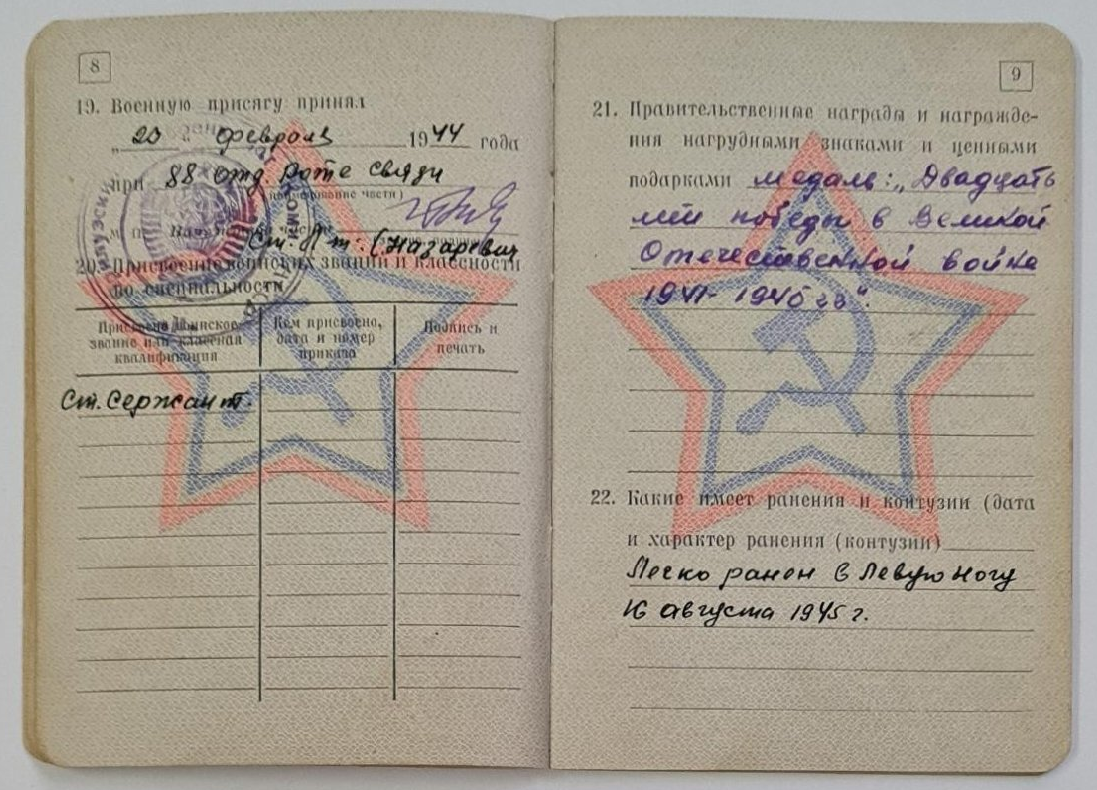 8
19. Военную присягу принял
„ 20 " февраля 1944 года
при 88 отд. роте связи
(наименование части)
М. П.
Ст. Л-т: (Назаревич
20. Присвоение воинских званий и классности
по специальности
Присвоено воинское звание или классная квалификация
Кем присвоено, дата и номер приказа
Подпись и печать
Ст. Сержант.
9
21. Правительственные награды и награжде-
ния нагрудными знаками и ценными
подарками медаль: „Двадцать
лет победы в Великой
Отечественной войне
1941-1945 гг".
22. Какие имеет ранения и контузии (дата
и характер ранения (контузии)
Легко ранен в левую ногу
16 августа 1945 г.